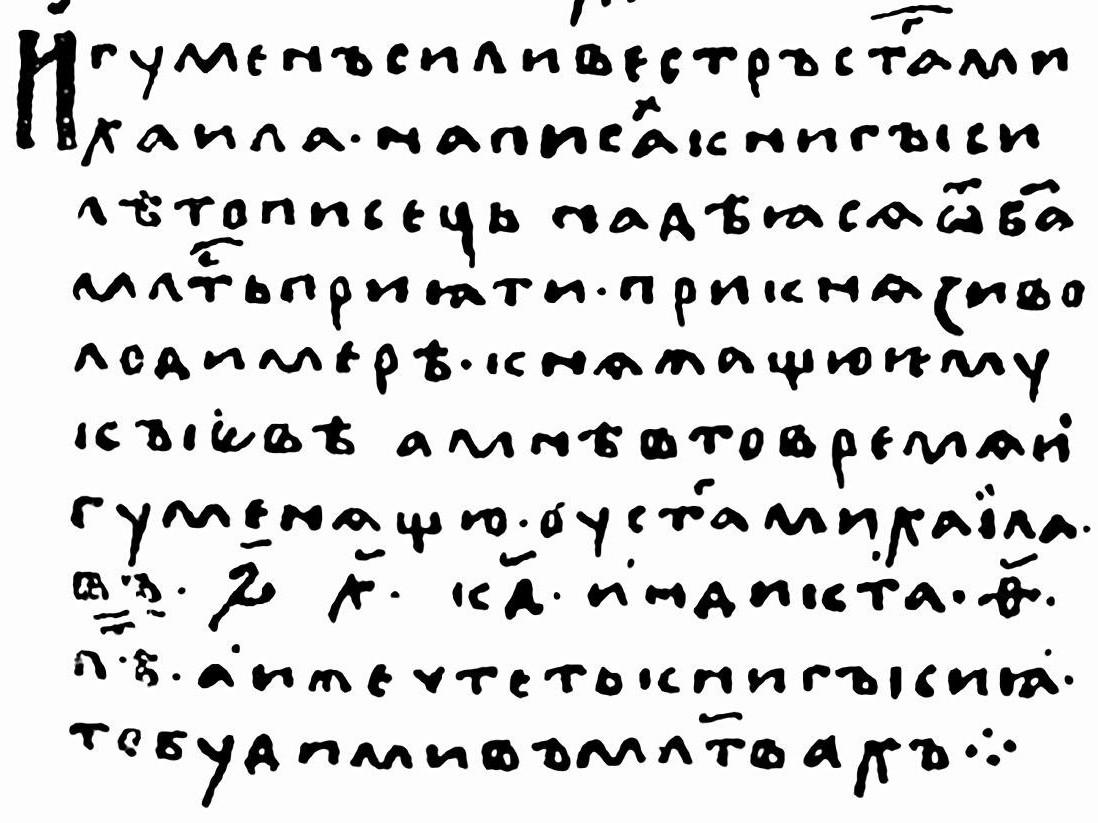 Игуменъ силивестръ ст҃гами
хаила · написахъ книгы си
лѣтописець надѣꙗсѧ ѿ б҃а
млⷭ҇тьприꙗти · при кнѧзи во
лодимерѣ · кнѧжащю ѥму
кыѥвѣ а мнѣ в то времѧ и
гуменѧщю · оу стⷢ҇а михаїла ·
въ · ҂ꙅ х҃ · к҃д · индикта · ѳ҃ ·
л҃ѣ · а иже чтеть книгы сиꙗ ·
то буди ми въ мл҃твахъ ⁘